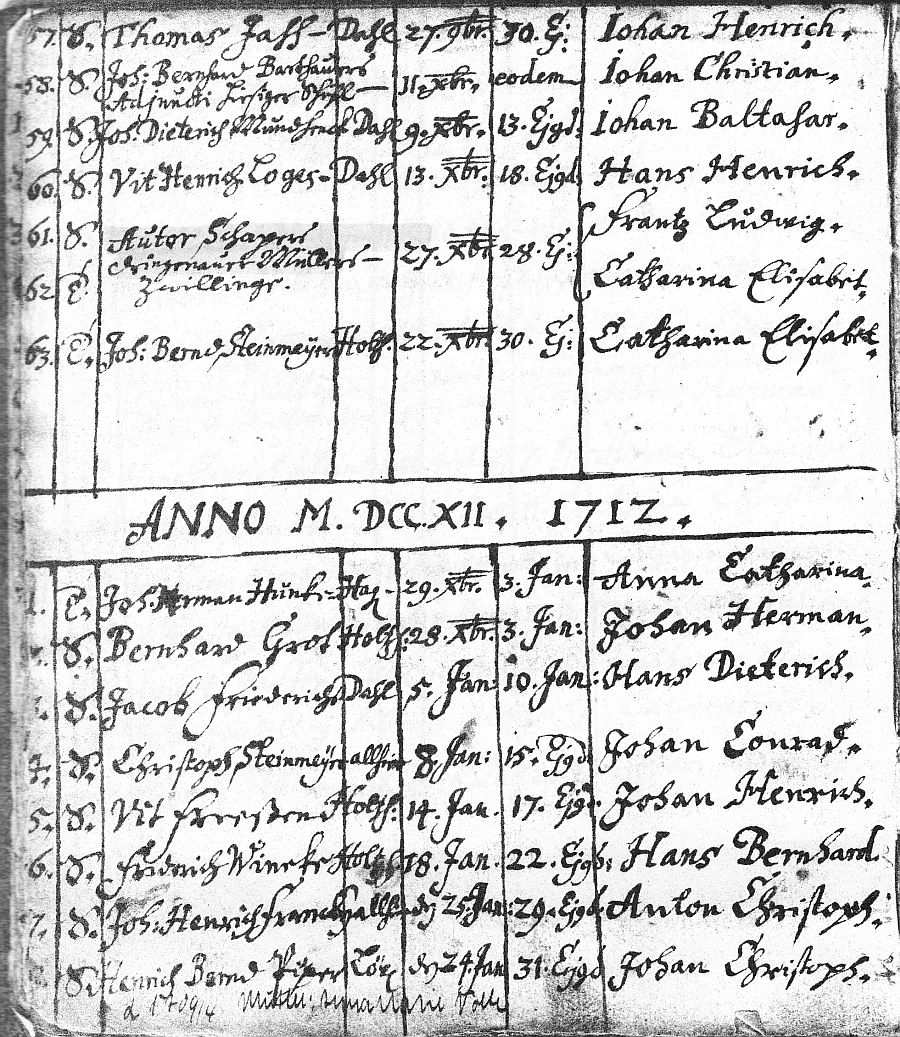 57. S. Thomas Jass - Dahl 27. 9br. 30. Ej: Johan Henrich.
58. S. Joh: Bernhard Barthauers 11. Xbr. eodem Johan Christian.
Adjuncti hiesiger Schul
59. S. Joh. Dieterich Mundhenck Dahl 9. Xbr. 13. Ejgd: Johan Baltasar.
60. S. Vit Henrich Loges - Dahl 13. Xbr: 18. Ejgd Hans Henrich.
61. S. Autor Schapers 27. Xbr 28. Ej: Frantz Ludwig.
Müllers -
62 T. Zwillinge. Catharina Elisabet.
63. T. Joh: Bernd Steinmeyer Holtz. 22. Xbr. 30. Ej: Catharina Elisabet.
ANNO M. DCC.XII. 1712.
1. T. Joh. Herman Hunke - Hag - 29. Xbr. 3. Jan: Anna Catharina.
S. Bernhard Grot Holtz: 28. Xbr. 3. Jan: Johan Herman.
S. Jacob Friederichs Dahl 5. Jan: 10. Jan: Hans Dieterich.
4. S. Christoph Steinmeyer allhier 8. Jan: 15. Ejgd. Johan Conrad.
5. S. Vit Freesen Holtz: 14. Jan. 17. Ejgd. Johan Henrich.
6. S. Friderich Wineke Holtz 18. Jan. 22. Ejgd: Hans Bernhard.
7. S. Joh: Henrich Francke allhier d 25 Jan: 29. Ejgd. Anton Christoph.
S. Henrich Bernd Piper d 24. Jan 31. Ejgd Johan Christoph.
Mutter: Anna Marie